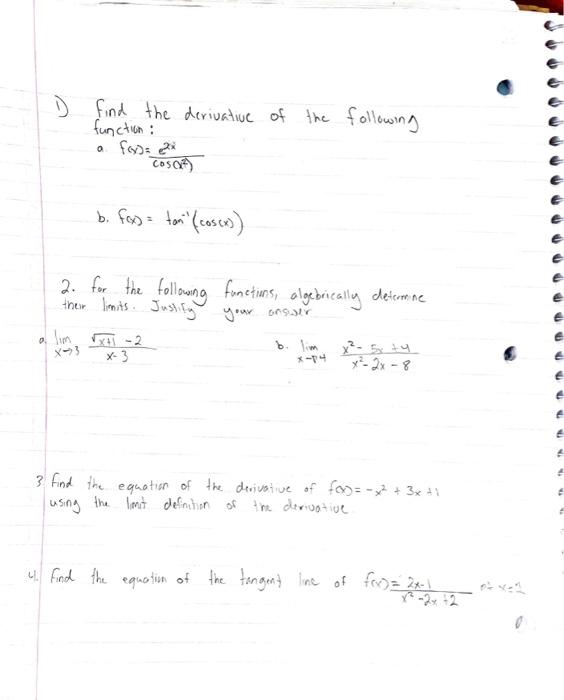 1) Find the derivative of the following
function:
a. f(x) = e^2x / cos(x²)
b. f(x) = tan⁻¹(cos(x))
2. For the following functions, algebrically determine
their limits. Justify your answer
a. lim x→3 (√x+1 - 2) / (x-3)
b. lim x→4 (x² - 5x + 4) / (x² - 2x - 8)
3 Find the equation of the derivative of f(x) = -x² + 3x + 1
using the limit definition of the derivative.
4. Find the equation of the tangent line of f(x) = (2x-1) / (x² - 2x + 2) at x=